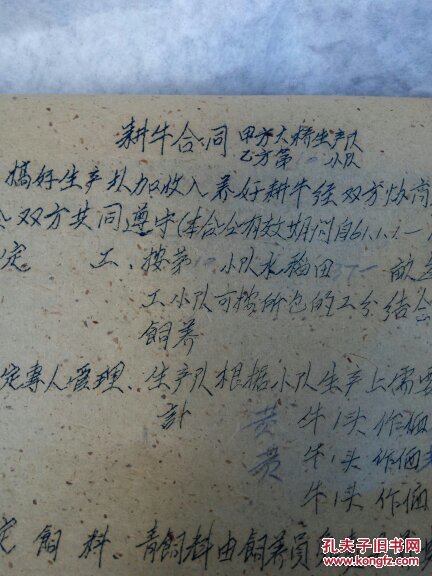 耕牛合同 甲方大桥生产队
乙方第 小队
搞好生产 加收入养好耕牛经双方协商
双方共同遵守(本合仝有效期间自61.1.1.一
定 工、按第 小队水稻田 一 亩
工小队可按所包的工分结合
飼养
定專人管理、生产队根据小队生产上需要
計 黄 牛1头作价
黄 牛1头作価
牛1头作価
定飼料、青飼料由飼養員
孔夫子旧书网
www.kongfz.com